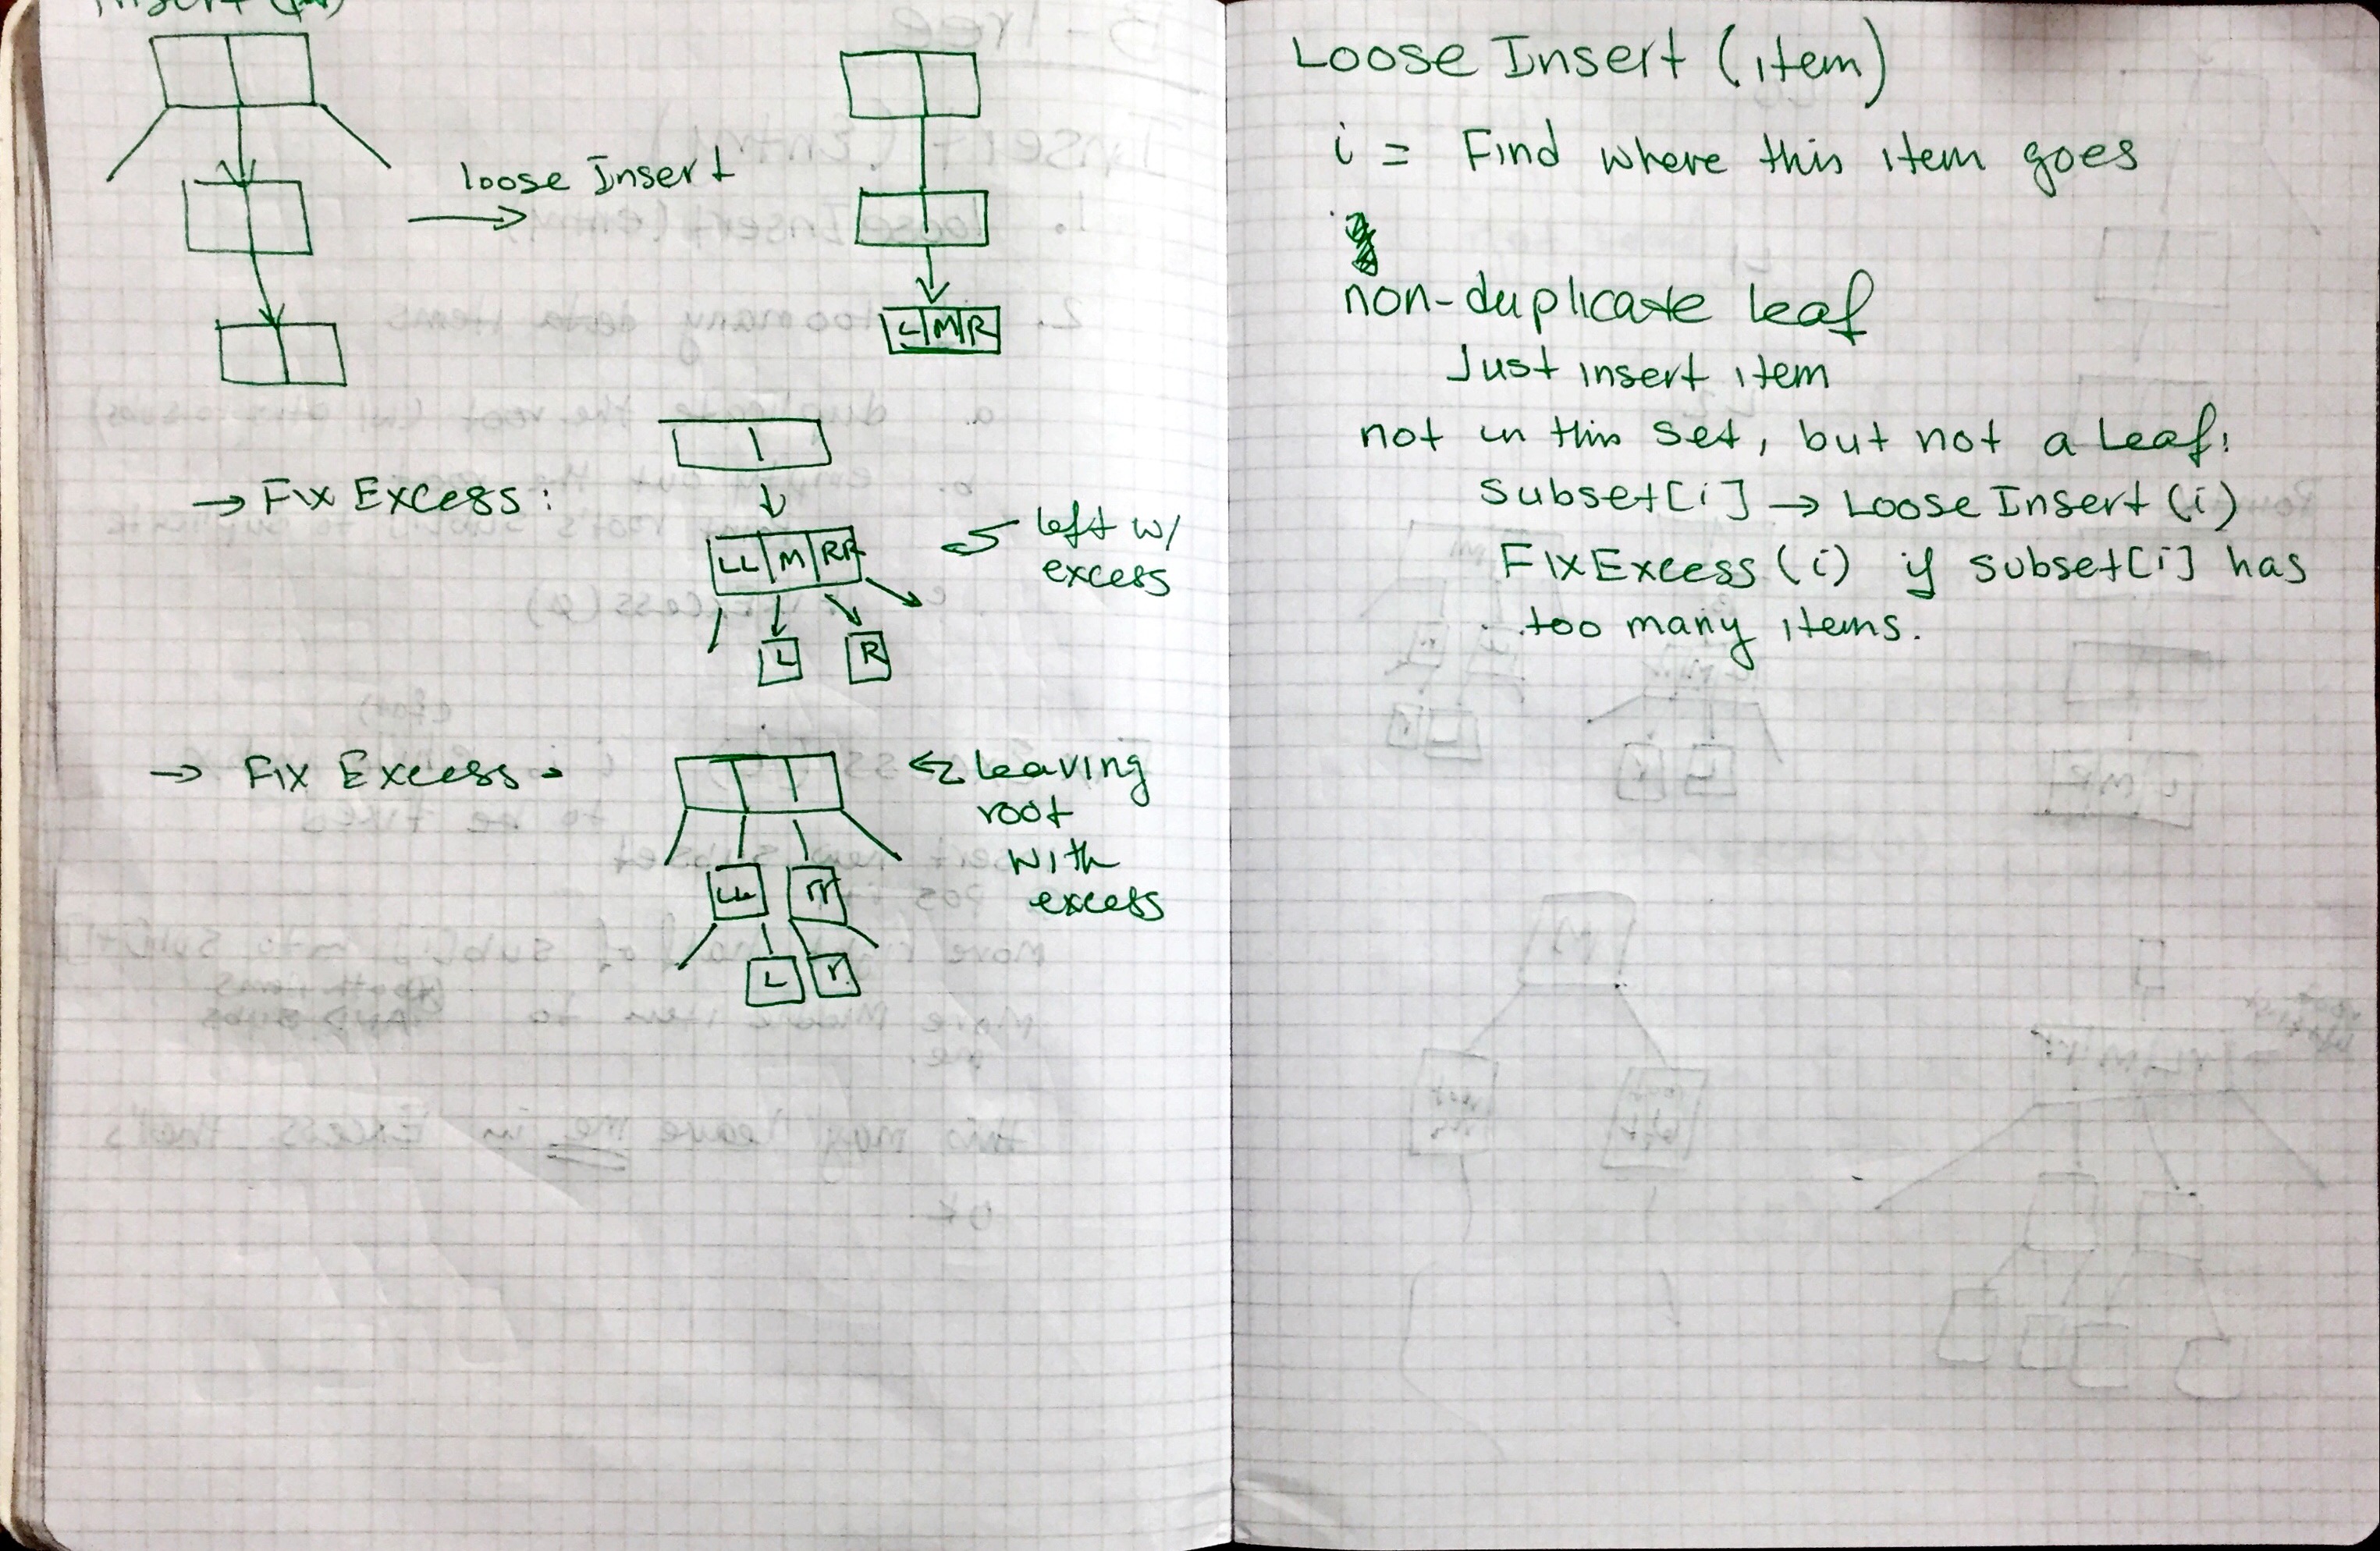 Insert
loose Insert
L M R
→ Fix Excess:
LL M RR
L R
left w/
excess
→ Fix Excess
LL rr
L r
leaving
root
with
excess
Loose Insert (item)
i = Find where this item goes
non-duplicate leaf
Just insert item
not in this set, but not a leaf:
subset[i] → Loose Insert (i)
FixExcess (i) if subset[i] has
too many items.